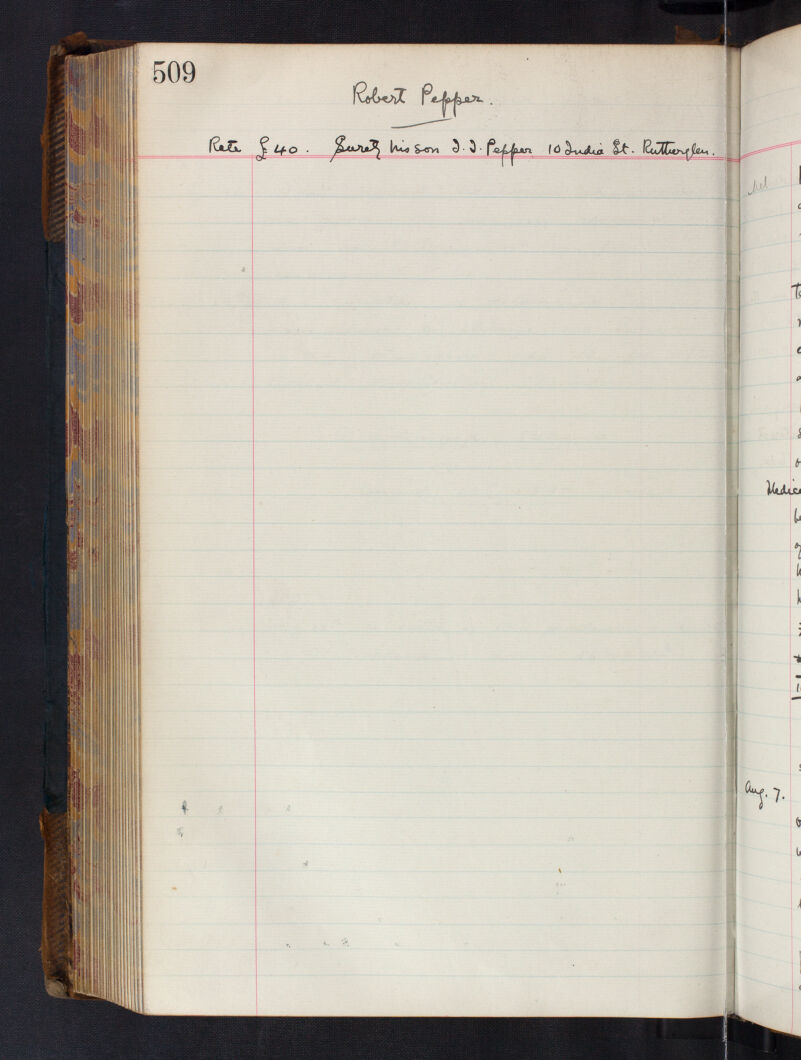 509
Robert Pepper.
Rate £40. Surety his son J. J. Pepper 10 India St. Rutherglen.
Medica
Aug. 7.